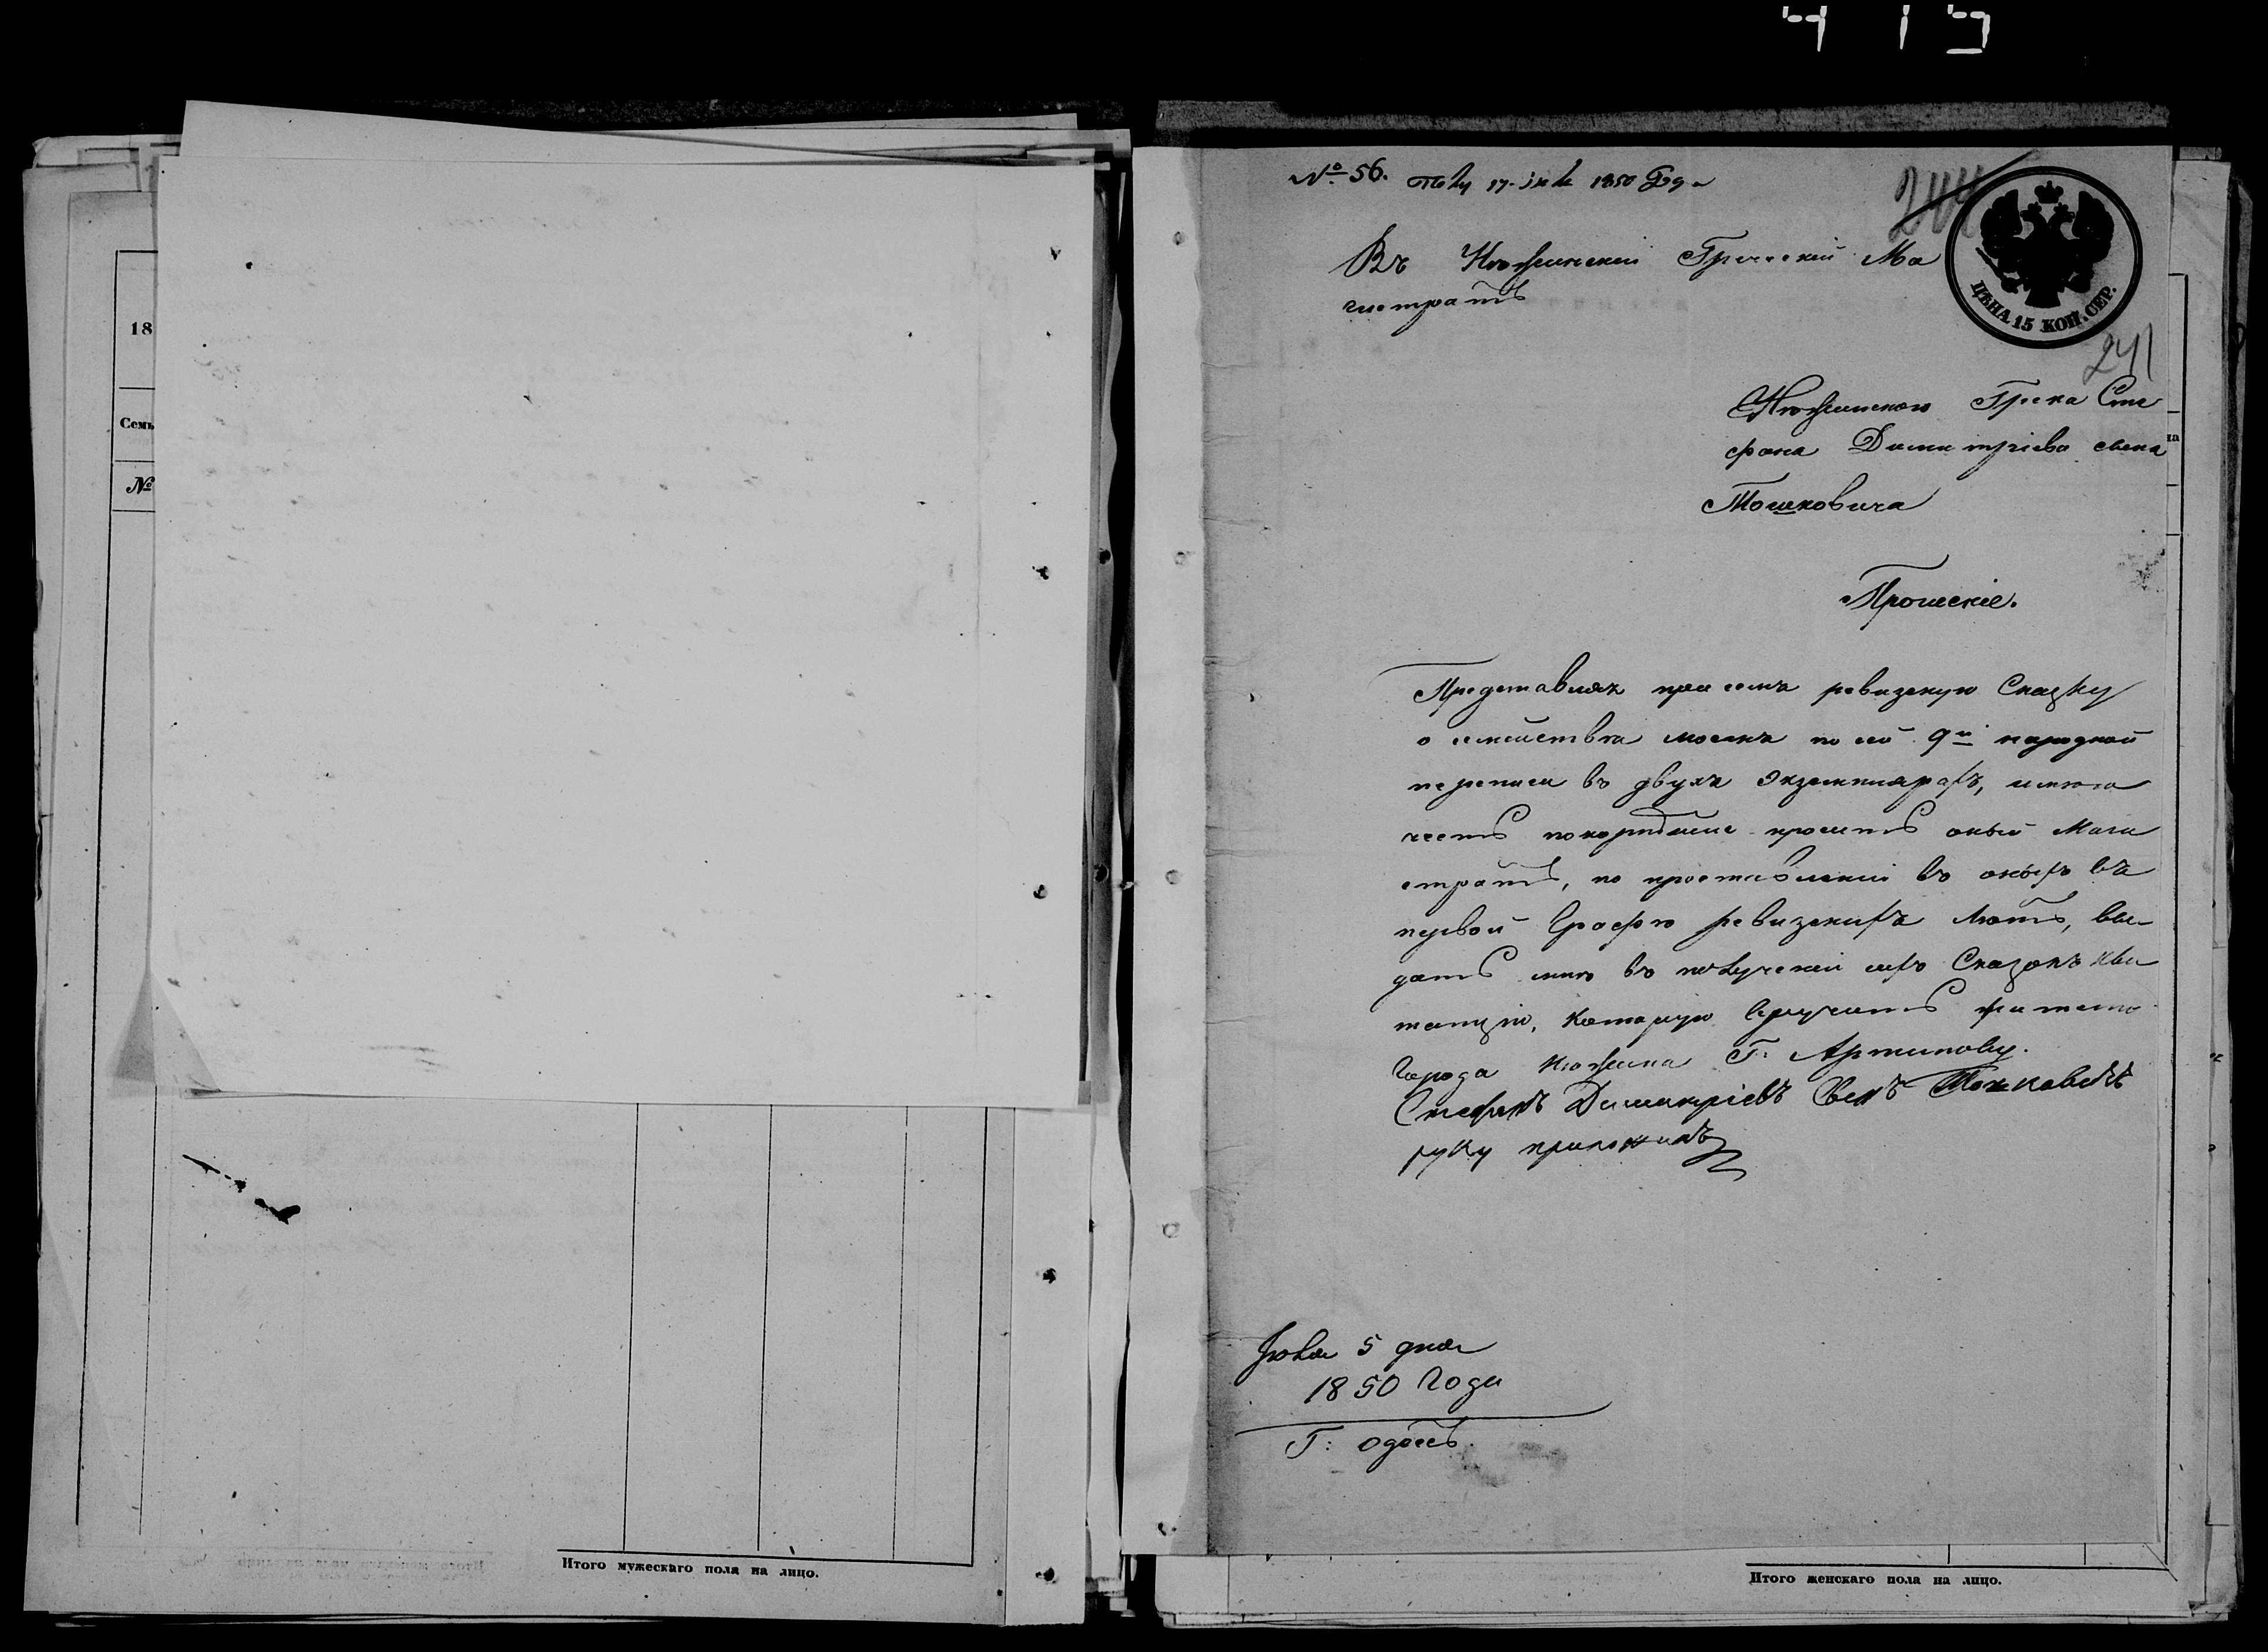 415
18
Семь
№
Итого мужескаго пола на лицо.
№ 56. 1850 Года
244
ЦѢНА 15 КОП. СЕР.
Въ Нѣжинскій Греческій Ма
гистратъ
241
Нѣжинскаго Грека Сте
фана Димитріева сына
Тошковича
Прошеніе.
Представляя при семъ ревизскую Сказку
о семействѣ моемъ по сей 9й народной
переписи въ двухъ экземплярахъ, имѣю
честь покорнѣйше просить оный Маги
стратъ, по проставленіи въ оныхъ въ
первой графѣ ревизскихъ лѣтъ, вы
дать мнѣ въ полученіи сихъ Сказокъ кви
танцію, которую вручить жителю
города Нѣжина Г: Артинову.
Стефанъ Димитріевъ Сынъ Тошковичъ
руку приложилъ
Іюля 5 дня
1850 года
Г: Одесса
Итого женскаго пола на лицо.